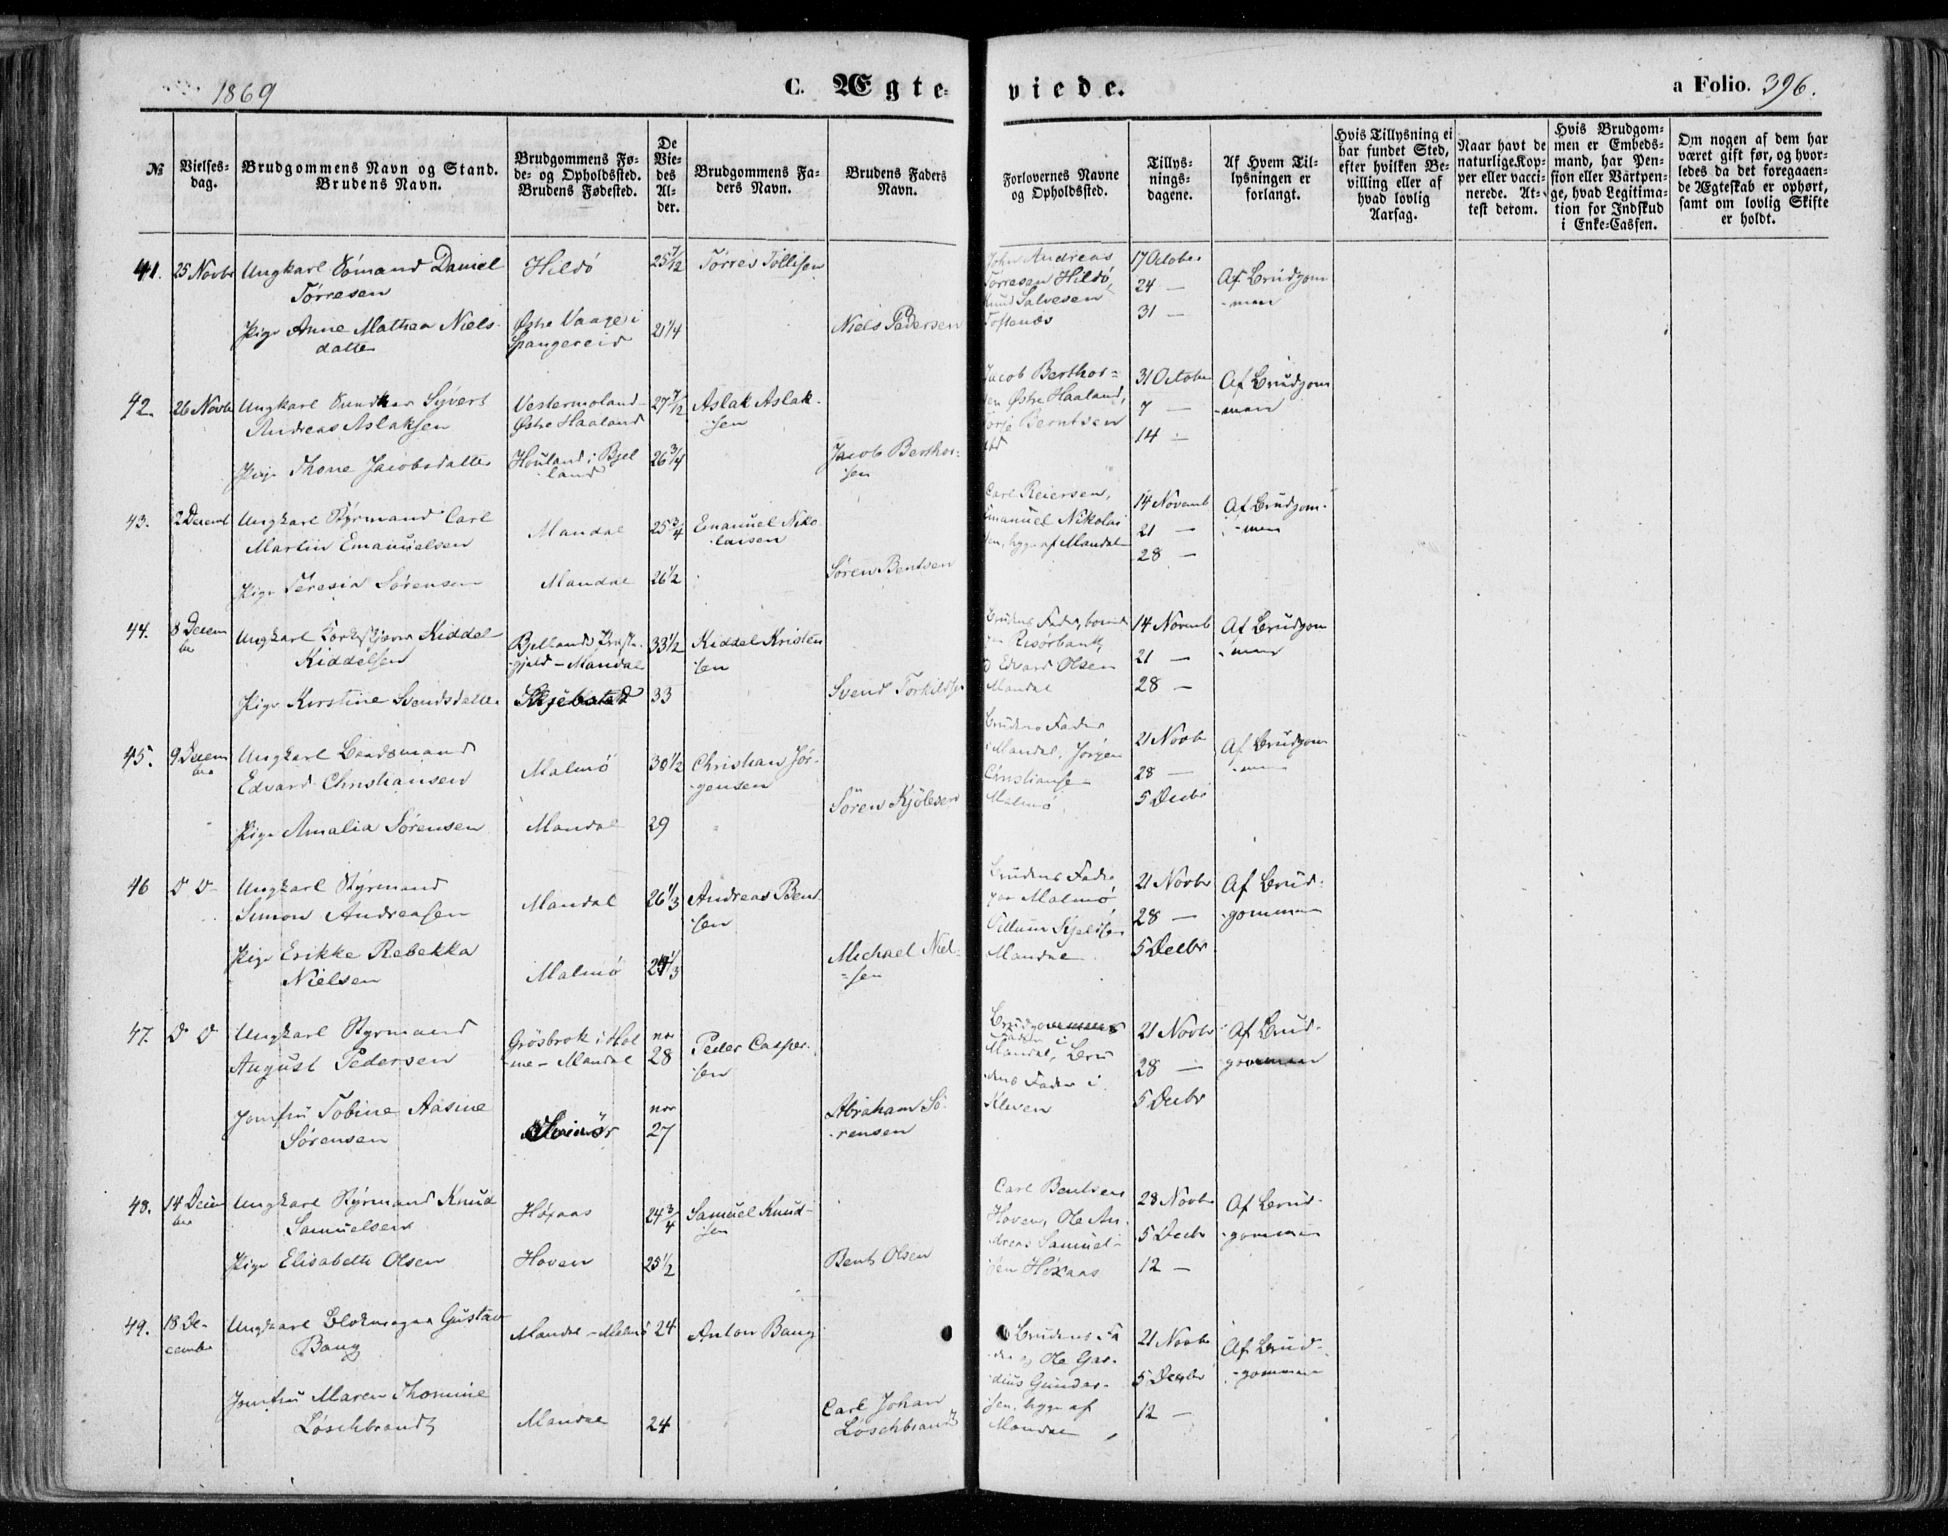 1869
C. Ægte-
viede.
a Folio. 396.
№
Vielses-
dag.
Brudgommens Navn og Stand.
Brudens Navn.
Brudgommens Fø-
de- og Opholdssted.
Brudens Fødested.
De
Vie-
des
Al-
der.
Brudgommens Fa-
ders Navn.
Brudens Faders
Navn.
Forlovernes Navne
og Opholdssted.
Tillys-
nings-
dagene.
Af Hvem Til-
lysningen er
forlangt.
Hvis Tillysning ei
har fundet Sted,
efter hvilken Be-
villing eller af
hvad lovlig
Aarsag.
Naar havt de
naturlige Kop-
per eller vacci-
nerede. At-
test derom.
Hvis Brudgom-
men er Embeds-
mand, har Pen-
sion eller Vartpen-
ge, hvad Legitima-
tion for Indskud
i Enke-Cassen.
Om nogen af dem har
været gift før, og hvor-
ledes da det foregaaen-
de Ægteskab er ophørt,
samt om lovlig Skifte
er holdt.
41. 25 Novbr Ungkarl Sömand Daniel
Törresen
Hildö
25 7/12
Törres Tollisen
John Andreas
Torresen Hildö,
Knud Salvesen
Tostenæs
17 October
24 —
31 —
Af Brudgom
-men
Pige Anne Mathea Niels-
datter
Østre Vaage i
Spangereid
21 1/4
Niels Pedersen
42. 26 Novbr Ungkarl Snedker Syvert
Andreas Aslaksen
Vestermoland -
Østre Haaland
27 7/12
Aslak Aslak-
sen
Jacob Berthos=
en Østre Haaland,
Berntsen
31 October
7 —
14 —
Af Brudgom
-men
Pige Thone Jacobsdatter
Houland i Bjel
land
26 3/4
Jacob Berthos=
sen
43. 2 Decemb Ungkarl Styrmand Carl
Martin Emanuelsen
Mandal
25 3/4
Emanuel Niko
laisen
Carl Reiersen,
Emanuel Nikolai
sen, bgge af Mandal
14 Novemb
21 —
28 —
Af Brudgom-
-men
Pige Teresia Sörensen
Mandal
26 1/2
Sören Bentsen
44. 8 Decem
ber
Ungkarl Kiddel
Kiddelsen
Bjellands Præste-
gjeld - Mandal
33 1/2
Kiddel Kristen
sen
Brudens Fader,
Risörbank,
Edvard Olsen
Mandal
14 Novemb
21 —
28 —
Af Brudgom
-men
Pige Kirstine Svendsdatter
Skjebstad
33
Svend Torkildse
45. 9 Decem
ber
Ungkarl Baadsmand
Edvard Christiansen
Malmö
30 1/2
Christian Jör-
gensen
Brudens Fader
i Mandal, Jörgen
Christiansen
Malmö
21 Novb
28 —
5 Decbr
Af Brudgom
-men
Pige Amalia Sörensen
Mandal
29
Sören Kjölesen
46 D D Ungkarl Styrmand
Simon Andreasen
Mandal
26 1/3
Andreas Bent
sen
Brudens Fader
paa Malmö
Villum Kjeldsen
Mandal
21 Novbr
28 —
5 Decbr
Af Brud-
gommen
Pige Erikke Rebekka
Nielsen
Malmö
24 1/3
Michael Niel-
-sen
47. D D Ungkarl Styrmand
August Pedersen
Grösbrok i Hol
me - Mandal
nær
28
Peder Casper-
sen
Brudgommens
Fader i
Mandal, Bru
dens Fader i
Kleven
21 Novbr
28 —
5 Decbr
Af Brud-
gommen
Jomfru Tobine Aasine
Sörensen
Svinör
nær
27
Abraham Sö-
rensen
48. 14 Decem
ber
Ungkarl Styrmand Knud
Samuelsen
Höxaas
24 3/4
Samuel Knud-
sen
Carl Bentsen
Hoven, Ole An-
dreas Samuel-
sen Höxaas
28 Novbr
5 Decbr
12 —
Af Brud-
gommen
Pige Elisabeth Olsen
Hoven
25 1/2
Bent Olsen
49. 18 De-
cember
Ungkarl Blokmager Gustav
Bang
Mandal - Malmö
24
Anton Bang
Brudens Fa
der og Ole Gar-
dius Gunder-
sen, bgge af
Mandal
21 Novbr
5 Decbr
12 —
Af Brud-
gommen
Jomfru Maren Thomine
Löschbrandt
Mandal
24
Carl Johan
Löschbrandt